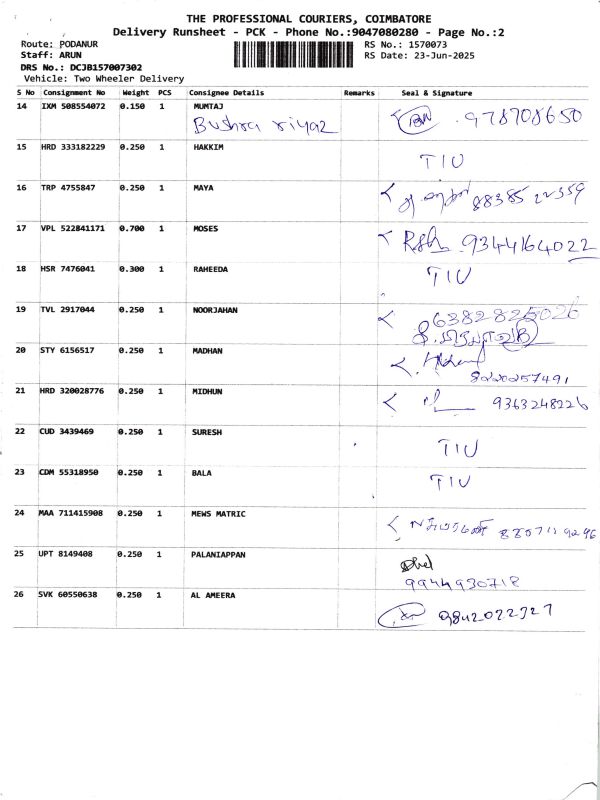 THE PROFESSIONAL COURIERS, COIMBATORE
Delivery Runsheet - PCK - Phone No.:9047080280 - Page No.:2
Route: PODANUR
RS No.: 1570073
Staff: ARUN
RS Date: 23-Jun-2025
DRS No.: DCJB157007302
Vehicle: Two Wheeler Delivery
S No Consignment No Weight PCS Consignee Details Remarks Seal & Signature
14 IXM 508554072 0.150 1 MUMTAJ
Bushra riyaz 978708650
15 HRD 333182229 0.250 1 HAKKIM
TIU
16 TRP 4755847 0.250 1 MAYA
88385 22359
17 VPL 522841171 0.700 1 MOSES
9344164022
18 HSR 7476041 0.300 1 RAHEEDA
TIU
19 TVL 2917044 0.250 1 NOORJAHAN
6382825026
20 STY 6156517 0.250 1 MADHAN
8220257491
21 HRD 320028776 0.250 1 MIDHUN
9363248226
22 CUD 3439469 0.250 1 SURESH
TIU
23 CDM 55318950 0.250 1 BALA
TIU
24 MAA 711415908 0.250 1 MEWS MATRIC
25 UPT 8149408 0.250 1 PALANIAPPAN
9944930718
26 SVK 60550638 0.250 1 AL AMEERA
9842022327